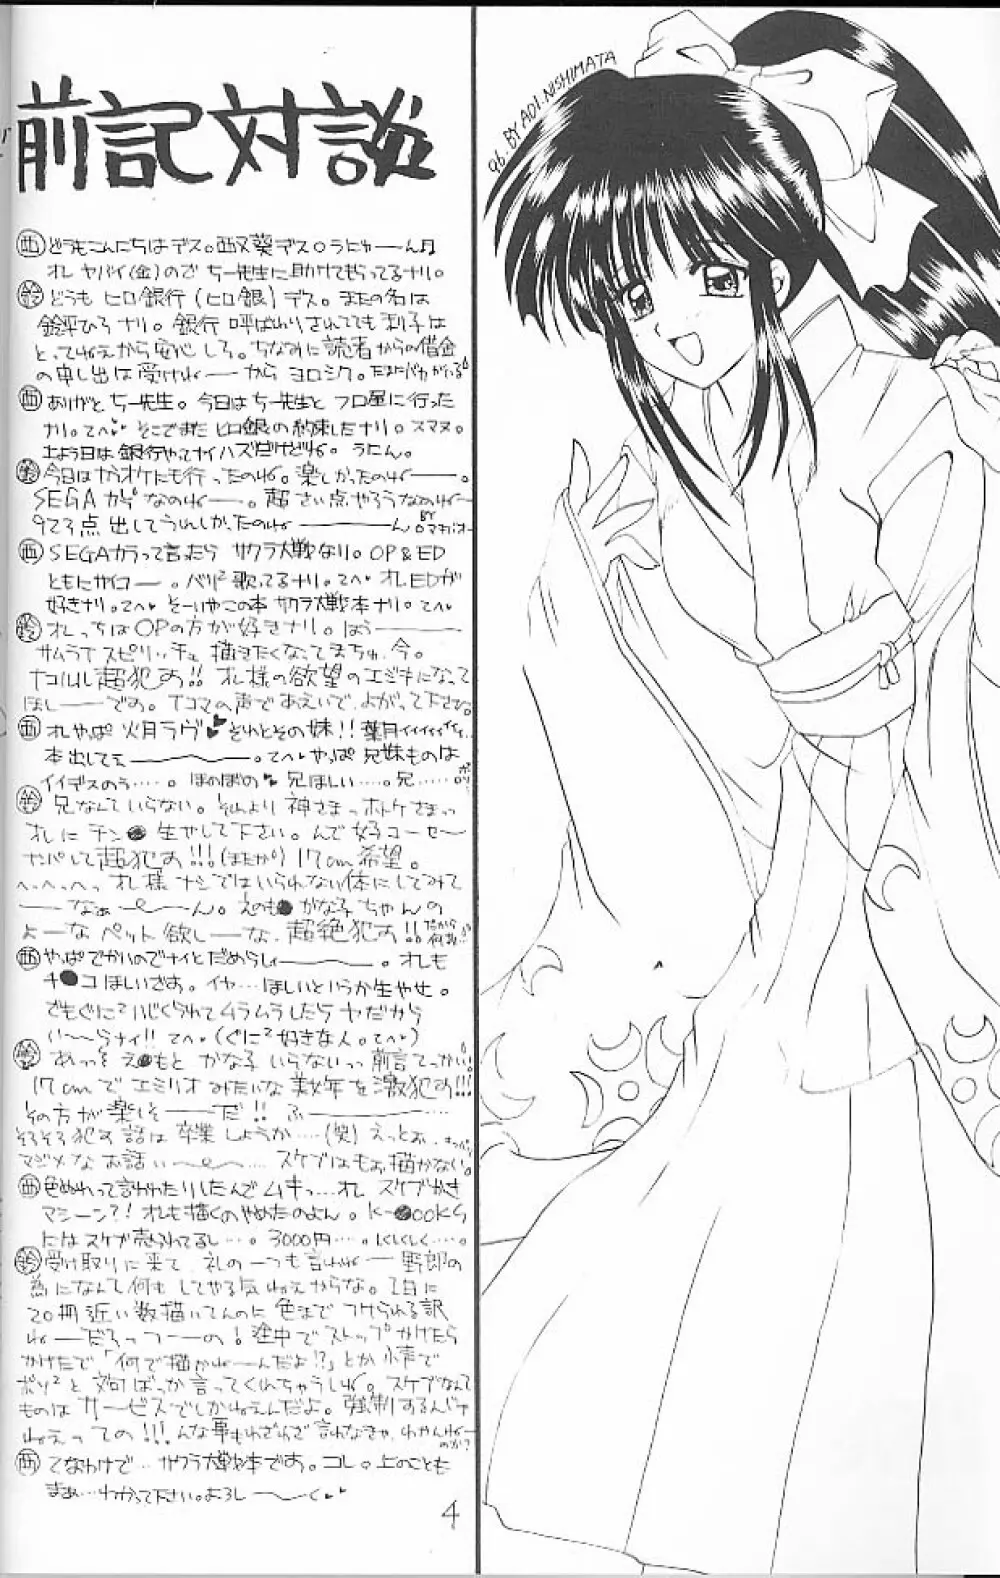 前記対談
96. BY AOI.NISHIMATA
西 どうもこんにちはデス。西又葵デス。うにゃーん月
オレ ヤバイ(金)ので ちー先生に助けてもらってるナリ。
鈴 どうも ヒロ銀行(ヒロ銀)デス。またの名は
鈴平ひろ ナリ。銀行 呼ばわりされてても 利子は
とってねえから安心しろ。ちなみに読者からの借金
の申し出は受けねーから ヨロシク。たまにバカがいる
西 ありがと ちー先生。今日はちー先生と フロ屋に行った
ナリ。てへ♥ そこでまた ヒロ銀の約束したナリ。スマヌ。
土よう日は銀行やってナイハズだけどね。うにん。
鈴 今日はカラオケにも行ったのね。楽しかったのねー。
SEGAカラなのねー。超 さい点やろうなのねー
923点 出してうれしかったのねーん。
西 SEGAカラって言ったら サクラ大戦なり。OP&ED
ともにサイコー。バリ²歌ってるナリ。てへ♥ オレEDが
好きナリ。てへ♥ そーいやこの本 サクラ大戦本ナリ。てへ♥
鈴 オレっちはOPの方が好きナリ。はうー
サムライスピリッチュ 描きたくなってまちゅ、今。
ナコルル超犯す!! オレ様の欲望のエジキになって
ほしーです。
西 オレやっぱ 火月ラヴ♥ それとその妹!! 葉月ィィィィィ
本出してえー。てへ♥ やっぱ 兄妹ものは
イイデスのう……。ほのぼの♥ 兄ほしい……。兄……
鈴 兄なんていらない。それより 神さまっホトケさまっ
オレに チン● 生やして下さい。んで女子コーセー
ナンパして超犯す!!!(またか) 17cm希望。
へっへっへっ オレ様 ナシではいられない体にしてみて
ーなぁーん。えのも● かな子ちゃんの
よーな ペット 欲しーな、超絶犯す!!
西 やっぱでかいのでナイとだめらしィー。オレも
チ●コほしいさあ。イヤ…ほしいというか生やせ。
でもぐに²いじくられてムラムラしたら ヤだから
い〜らナイ!! てへ♥(ぐに²好きな人。てへ♥)
鈴 あっっそ え●もと かな子 いらないっっ 前言てっかい!
17cmで エミリオ みたいな 美少年を激犯す!!!
その方が楽しそーだ!! ふー…
そろそろ犯す話は 卒業しようか…(笑) えっとぉ、
マジメな お話ぃ〜… スケブはもぉ描かない。
西 色ぬれって言われたりしたんで ムキっ…オレ スケブかき
マシーン?! オレも描くのやめたのよん。K-●OOKS
にはスケブ売られてるし…。3000円…。くしくしく…。
鈴 受け取りに来て 礼の一つも言わねー 野郎の
為になんて何も してやる気ねえからな。1日に
20冊近い数描いてんのに 色までつけられる訳
ねーだろっつーの! 途中でストップかけたら
かけたで「何で描かねーんだよ!?」とか小声で
ボソ²と 文句ばっか言ってくれちゃうしね。スケブなんて
ものは サービスでしかねえんだよ。強制するんじゃ
ねえっての!!! んな事もわざわざ言わなきゃ、わかんねーのか?
西 てなわけで… サクラ大戦本です。コレ。上のことも
まぁ…わかって下さい。よろしーく♥
4